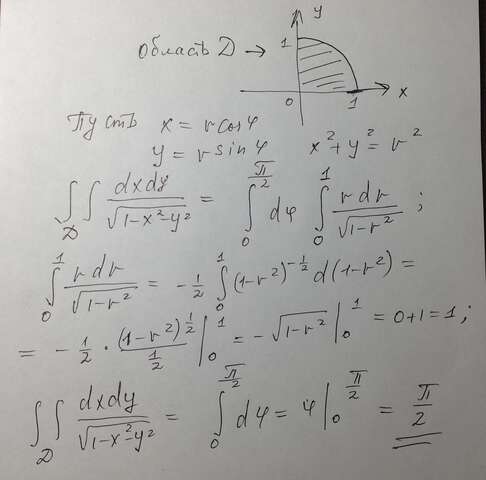 y
область D →
1
0 1 x
Пусть x = r cos φ
y = r sin φ x² + y² = r²
∬_D dxdy/√(1-x²-y²) = ∫_0^{π/2} dφ ∫_0^1 r dr/√(1-r²) ;
∫_0^1 r dr/√(1-r²) = -1/2 ∫_0^1 (1-r²)^{-1/2} d(1-r²) =
= -1/2 · (1-r²)^{1/2}/(1/2) |_0^1 = -√(1-r²) |_0^1 = 0+1 = 1;
∬_D dxdy/√(1-x²-y²) = ∫_0^{π/2} dφ = φ |_0^{π/2} = π/2